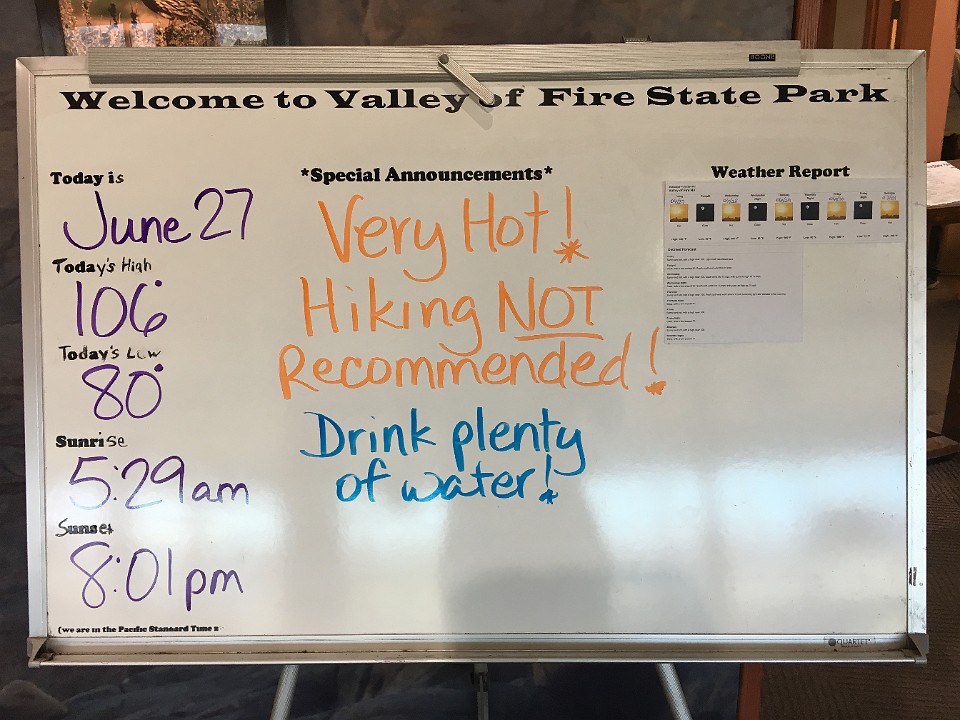 BOONE
Welcome to Valley of Fire State Park
Today is
June 27
Today's High
106°
Today's Low
80°
Sunrise
5:29am
Sunset
8:01pm
(we are in the Pacific Standard Time
*Special Announcements*
Very Hot!
Hiking NOT
Recommended!
Drink plenty
of water!
Weather Report
QUARTET